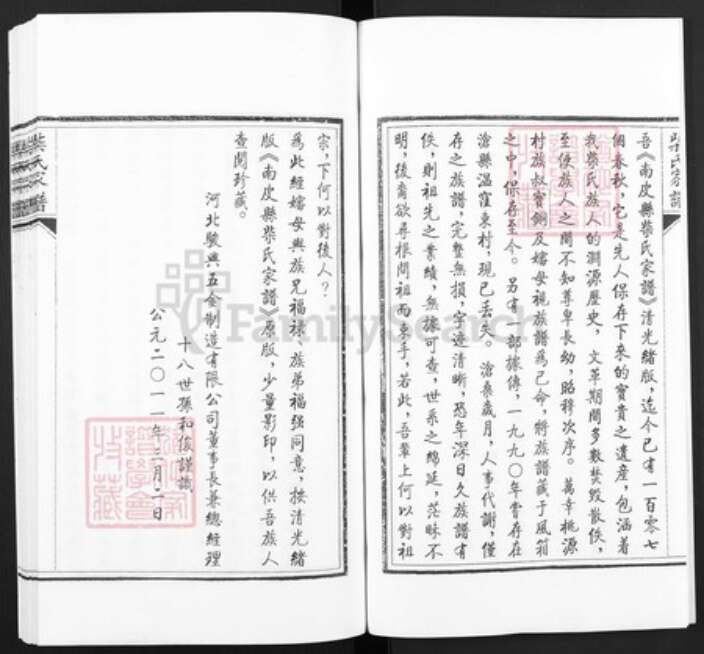 吾《南皮縣柴氏家譜》清光緒版，迄今已有一百零七
個春秋，它是先人保存下來的寶貴之遺產，包涵着
我柴氏族人的淵源歷史，文革期間多數焚毀散佚，
至使族人之間不知尊卑長幼，昭穆次序。萬幸桃源
村族叔寶鋼及嬸母視族譜爲己命，將族譜藏于風箱
之中，保存至今。另有一部據傳，一九九〇年嘗存在
滄縣温窪東村，現已丢失。滄桑歲月，人事代謝，僅
存之族譜，完整無損，字迹清晰，恐年深日久族譜有
佚，則祖先之業績，無據可查，世系之綿延，茫昧不
明，後裔欲尋根問祖而束手，若此，吾輩上何以對祖
宗，下何以對後人？
爲此經嬸母與族兄福禄、族弟福强同意，按清光緒
版《南皮縣柴氏家譜》原版，少量影印，以供吾族人
查閱珍藏。
河北駿興五金制造有限公司董事長兼總經理
十八世孫和俊謹識
公元二〇一一年二月二日
柴氏家譜
FamilySearch